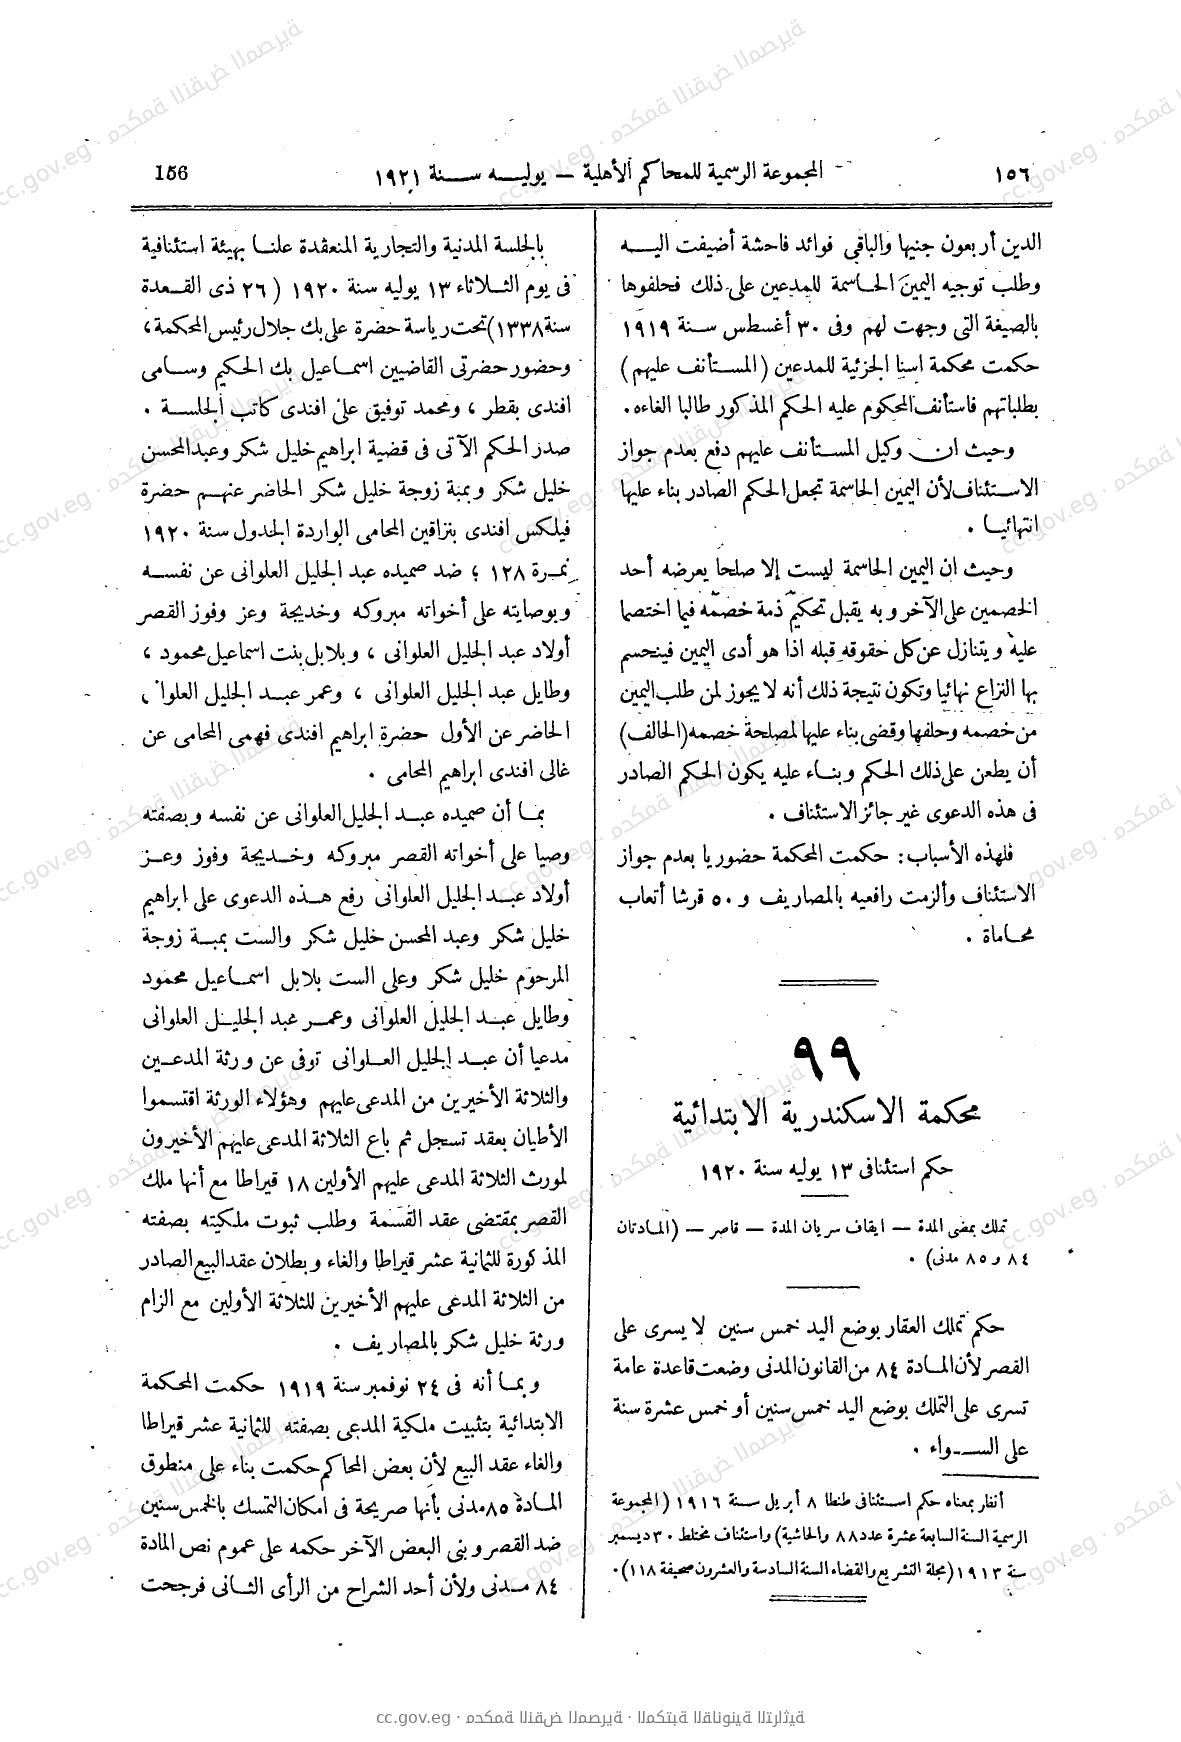 ١٥٦
المجموعة الرسمية للمحاكم الأهلية — يوليه سنة ١٩٢١
156
الدين أربعون جنيها والباقى فوائد فاحشة أضيفت اليه
وطلب توجيه اليمين الحاسمة للمدعين على ذلك فحلفوها
بالصيغة التى وجهت لهم وفى ٣٠ أغسطس سنة ١٩١٩
حكمت محكمة اسنا الجزئية للمدعين (المستأنف عليهم)
بطلباتهم فاستأنف المحكوم عليه الحكم المذكور طالبا الغاءه.
وحيث ان وكيل المستأنف عليهم دفع بعدم جواز
الاستئناف لأن اليمين الحاسمة تجعل الحكم الصادر بناء عليها
انتهائيا .
وحيث ان اليمين الحاسمة ليست إلا صلحا يعرضه أحد
الخصمين على الآخر وبه يقبل تحكيم ذمة خصمه فيما اختصما
عليه ويتنازل عن كل حقوقه قبله اذا هو أدى اليمين فينحسم
بها النزاع نهائيا وتكون نتيجة ذلك أنه لا يجوز لمن طلب اليمين
من خصمه وحلفها وقضى بناء عليها لمصلحة خصمه (الحالف)
أن يطعن على ذلك الحكم وبناء عليه يكون الحكم الصادر
فى هذه الدعوى غير جائز الاستئناف .
فلهذه الأسباب: حكمت المحكمة حضوريا بعدم جواز
الاستئناف وألزمت رافعيه بالمصاريف و ٥٠ قرشا أتعاب
محاماة .
٩٩
محكمة الاسكندرية الابتدائية
حكم استئنافى ١٣ يوليه سنة ١٩٢٠
تملك بمضى المدة — ايقاف سريان المدة — قاصر — (المادتان
٨٤ و ٨٥ مدنى) .
حكم تملك العقار بوضع اليد خمس سنين لا يسرى على
القصر لأن المادة ٨٤ من القانون المدنى وضعت قاعدة عامة
تسرى على التملك بوضع اليد خمس سنين أو خمس عشرة سنة
على السواء .
أنظر بمعناه حكم استئنافى طنطا ٨ أبريل سنة ١٩١٦ (المجموعة
الرسمية السنة السابعة عشرة عدد ٨٨ والحاشية) واستئناف مختلط ٣٠ ديسمبر
سنة ١٩١٣ (مجلة التشريع والقضاء السنة السادسة والعشرون صحيفة ١١٨).
بالجلسة المدنية والتجارية المنعقدة علنا بهيئة استئنافية
فى يوم الثلاثاء ١٣ يوليه سنة ١٩٢٠ (٢٦ ذى القعدة
سنة ١٣٣٨) تحت رياسة حضرة على بك جلال رئيس المحكمة،
وحضور حضرتى القاضيين اسماعيل بك الحكيم وسامى
افندى بقطر، ومحمد توفيق على افندى كاتب الجلسة .
صدر الحكم الآتى فى قضية ابراهيم خليل شكر وعبدالمحسن
خليل شكر وبمبة زوجة خليل شكر الحاضر عنهم حضرة
فيلكس افندى بتزاقين المحامى الواردة الجدول سنة ١٩٢٠
نمرة ١٢٨ ؛ ضد صميده عبد الجليل العلوانى عن نفسه
وبوصايته على أخواته مبروكه وخديجة وعز وفوز القصر
أولاد عبد الجليل العلوانى ، وبلابل بنت اسماعيل محمود ،
وطايل عبد الجليل العلوانى ، وعمر عبد الجليل العلوا ،
الحاضر عن الأول حضرة ابراهيم افندى فهمى المحامى عن
غالى افندى ابراهيم المحامى .
بما أن صميده عبد الجليل العلوانى عن نفسه وبصفته
وصيا على أخواته القصر مبروكه وخديجة وفوز وعز
أولاد عبد الجليل العلوانى رفع هذه الدعوى على ابراهيم
خليل شكر وعبد المحسن خليل شكر والست بمبة زوجة
المرحوم خليل شكر وعلى الست بلابل اسماعيل محمود
وطايل عبد الجليل العلوانى وعمر عبد الجليل العلوانى
مدعيا أن عبد الجليل العلوانى توفى عن ورثة المدعين
والثلاثة الأخيرين من المدعى عليهم وهؤلاء الورثة اقتسموا
الأطيان بعقد تسجل ثم باع الثلاثة المدعى عليهم الأخيرون
لمورث الثلاثة المدعى عليهم الأولين ١٨ قيراطا مع أنها ملك
القصر بمقتضى عقد القسمة وطلب ثبوت ملكيته بصفته
المذكورة للثمانية عشر قيراطا والغاء وبطلان عقد البيع الصادر
من الثلاثة المدعى عليهم الأخيرين للثلاثة الأولين مع الزام
ورثة خليل شكر بالمصاريف .
وبما أنه فى ٢٤ نوفمبر سنة ١٩١٩ حكمت المحكمة
الابتدائية بتثبيت ملكية المدعى بصفته للثمانية عشر قيراطا
والغاء عقد البيع لأن بعض المحاكم حكمت بناء على منطوق
المادة ٨٥ مدنى بأنها صريحة فى امكان التمسك بالخمس سنين
ضد القصر وبنى البعض الآخر حكمه على عموم نص المادة
٨٤ مدنى ولأن أحد الشراح من الرأى الثانى فرجحت
cc.gov.eg · محكمة النقض المصرية · المكتبة القانونية التراثية